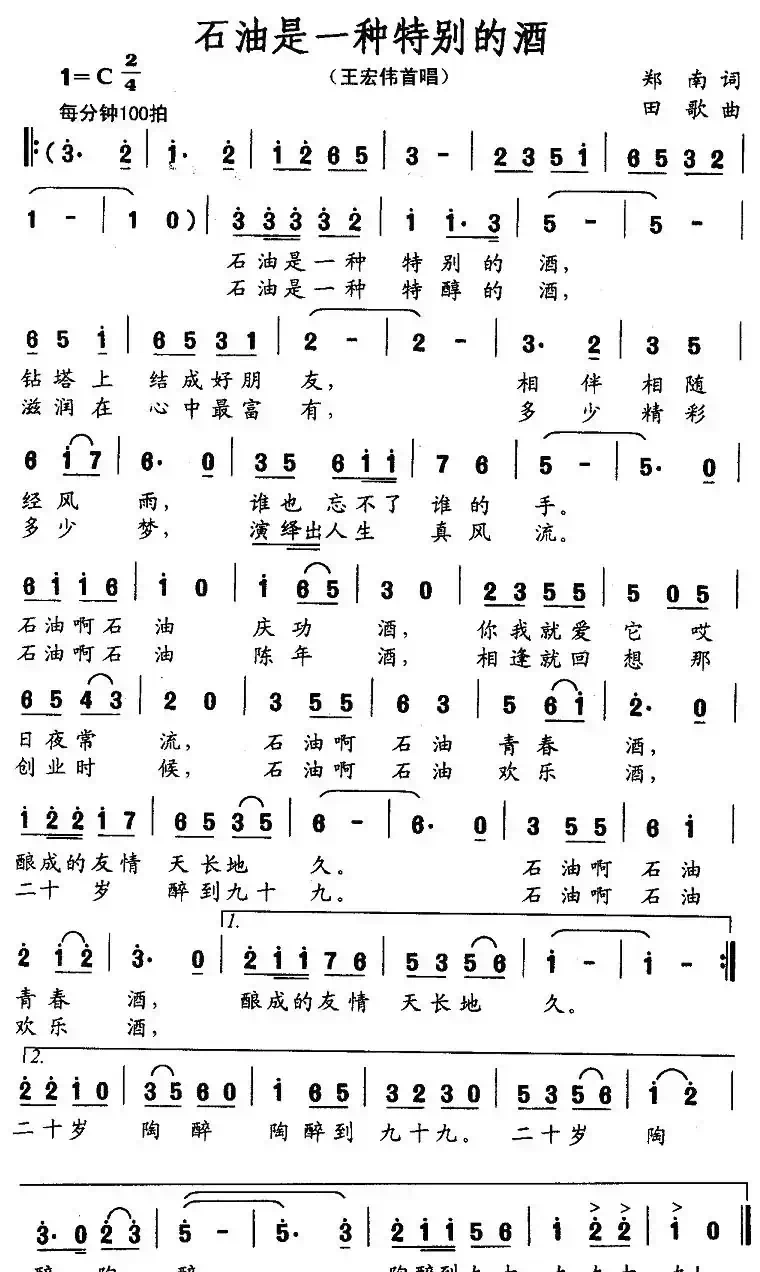 石油是一种特别的酒
（王宏伟首唱）
1=C 2/4
郑 南 词
每分钟100拍
田 歌 曲
‖:(3· 2 | 1· 2 | 1 2 6 5 | 3 - | 2 3 5 1 | 6 5 3 2 |
1 - | 1 0) | 3 3 3 3 2 | 1 1· 3 | 5 - | 5 - |
石油是一种 特别的 酒，
石油是一种 特醇的 酒，
6 5 1 | 6 5 3 1 | 2 - | 2 - | 3· 2 | 3 5 |
钻塔上 结成好朋 友， 相 伴 相随
滋润在 心中最富 有， 多 少 精彩
6 1 7 | 6· 0 | 3 5 6 1 1 | 7 6 | 5 - | 5· 0 |
经风 雨， 谁也 忘不了 谁的 手。
多少 梦， 演绎出人生 真风 流。
6 1 1 6 | 1 0 | 1 6 5 | 3 0 | 2 3 5 5 | 5 0 5 |
石油啊石 油 庆功 酒， 你我就爱 它 哎
石油啊石 油 陈年 酒， 相逢就回 想 那
6 5 4 3 | 2 0 | 3 5 5 | 6 3 | 5 6 1 | 2· 0 |
日夜常 流， 石油啊 石油 青春 酒，
创业时 候， 石油啊 石油 欢乐 酒，
1 2 2 1 7 | 6 5 3 5 | 6 - | 6· 0 | 3 5 5 | 6 1 |
酿成的友情 天长地 久。 石油啊 石油
二十 岁 醉到九十 九。 石油啊 石油
1.
2 1 2 | 3· 0 | 2 1 1 7 6 | 5 3 5 6 | 1 - | 1 - :‖
青春 酒， 酿成的友情 天长地 久。
欢乐 酒，
2.
2 2 1 0 | 3 5 6 0 | 1 6 5 | 3 2 3 0 | 5 3 5 6 | 1 2 |
二十岁 陶醉 陶醉到 九十九。 二十岁 陶
3· 0 2 3 | 5 - | 5· 3 | 2 1 1 5 6 | 1 2 2 | 1 0 ‖
醉 陶 醉 陶醉到九十九 九十九！